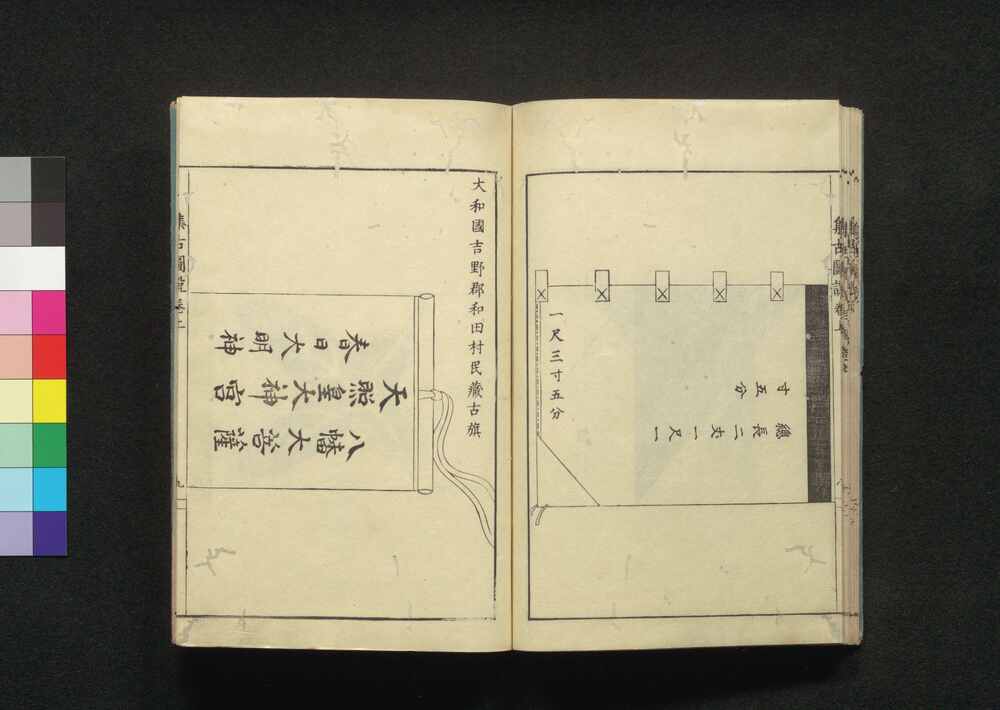 總長二丈一尺一
寸五分
一尺三寸五分
大和國吉野郡和田村民藏古旗
八幡大菩薩
天照皇大神宮
春日大明神
集古圖